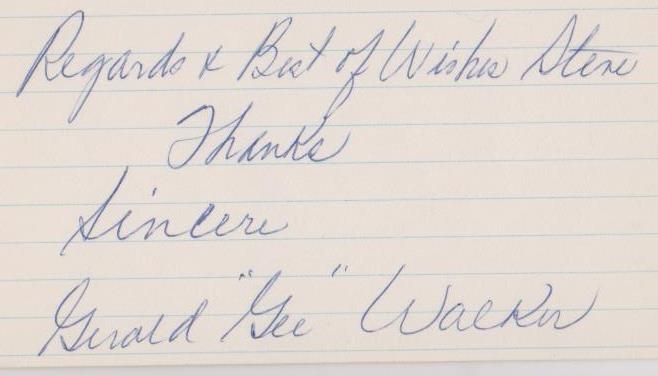 Regards & Best of Wishes Steve
Thanks
Sincere
Gerald "Gee" Walker